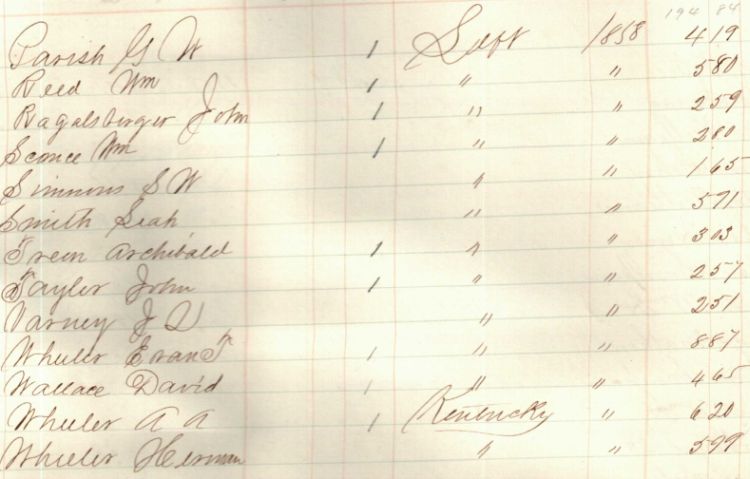 194 84
Parish G W 1 Sept 1858 419
Reed Wm 1 " " 580
Ragalsberger John 1 " " 259
Sconce Wm 1 " " 280
Simmons S W " " 165
Smith Leah " " 571
Treen Archibald 1 " " 303
Taylor John 1 " " 257
Varney J " " 251
Wheeler Evan T 1 " " 887
Wallace David 1 " " 465
Wheeler A A 1 Kentucky " 620
Wheeler Herman " " 599